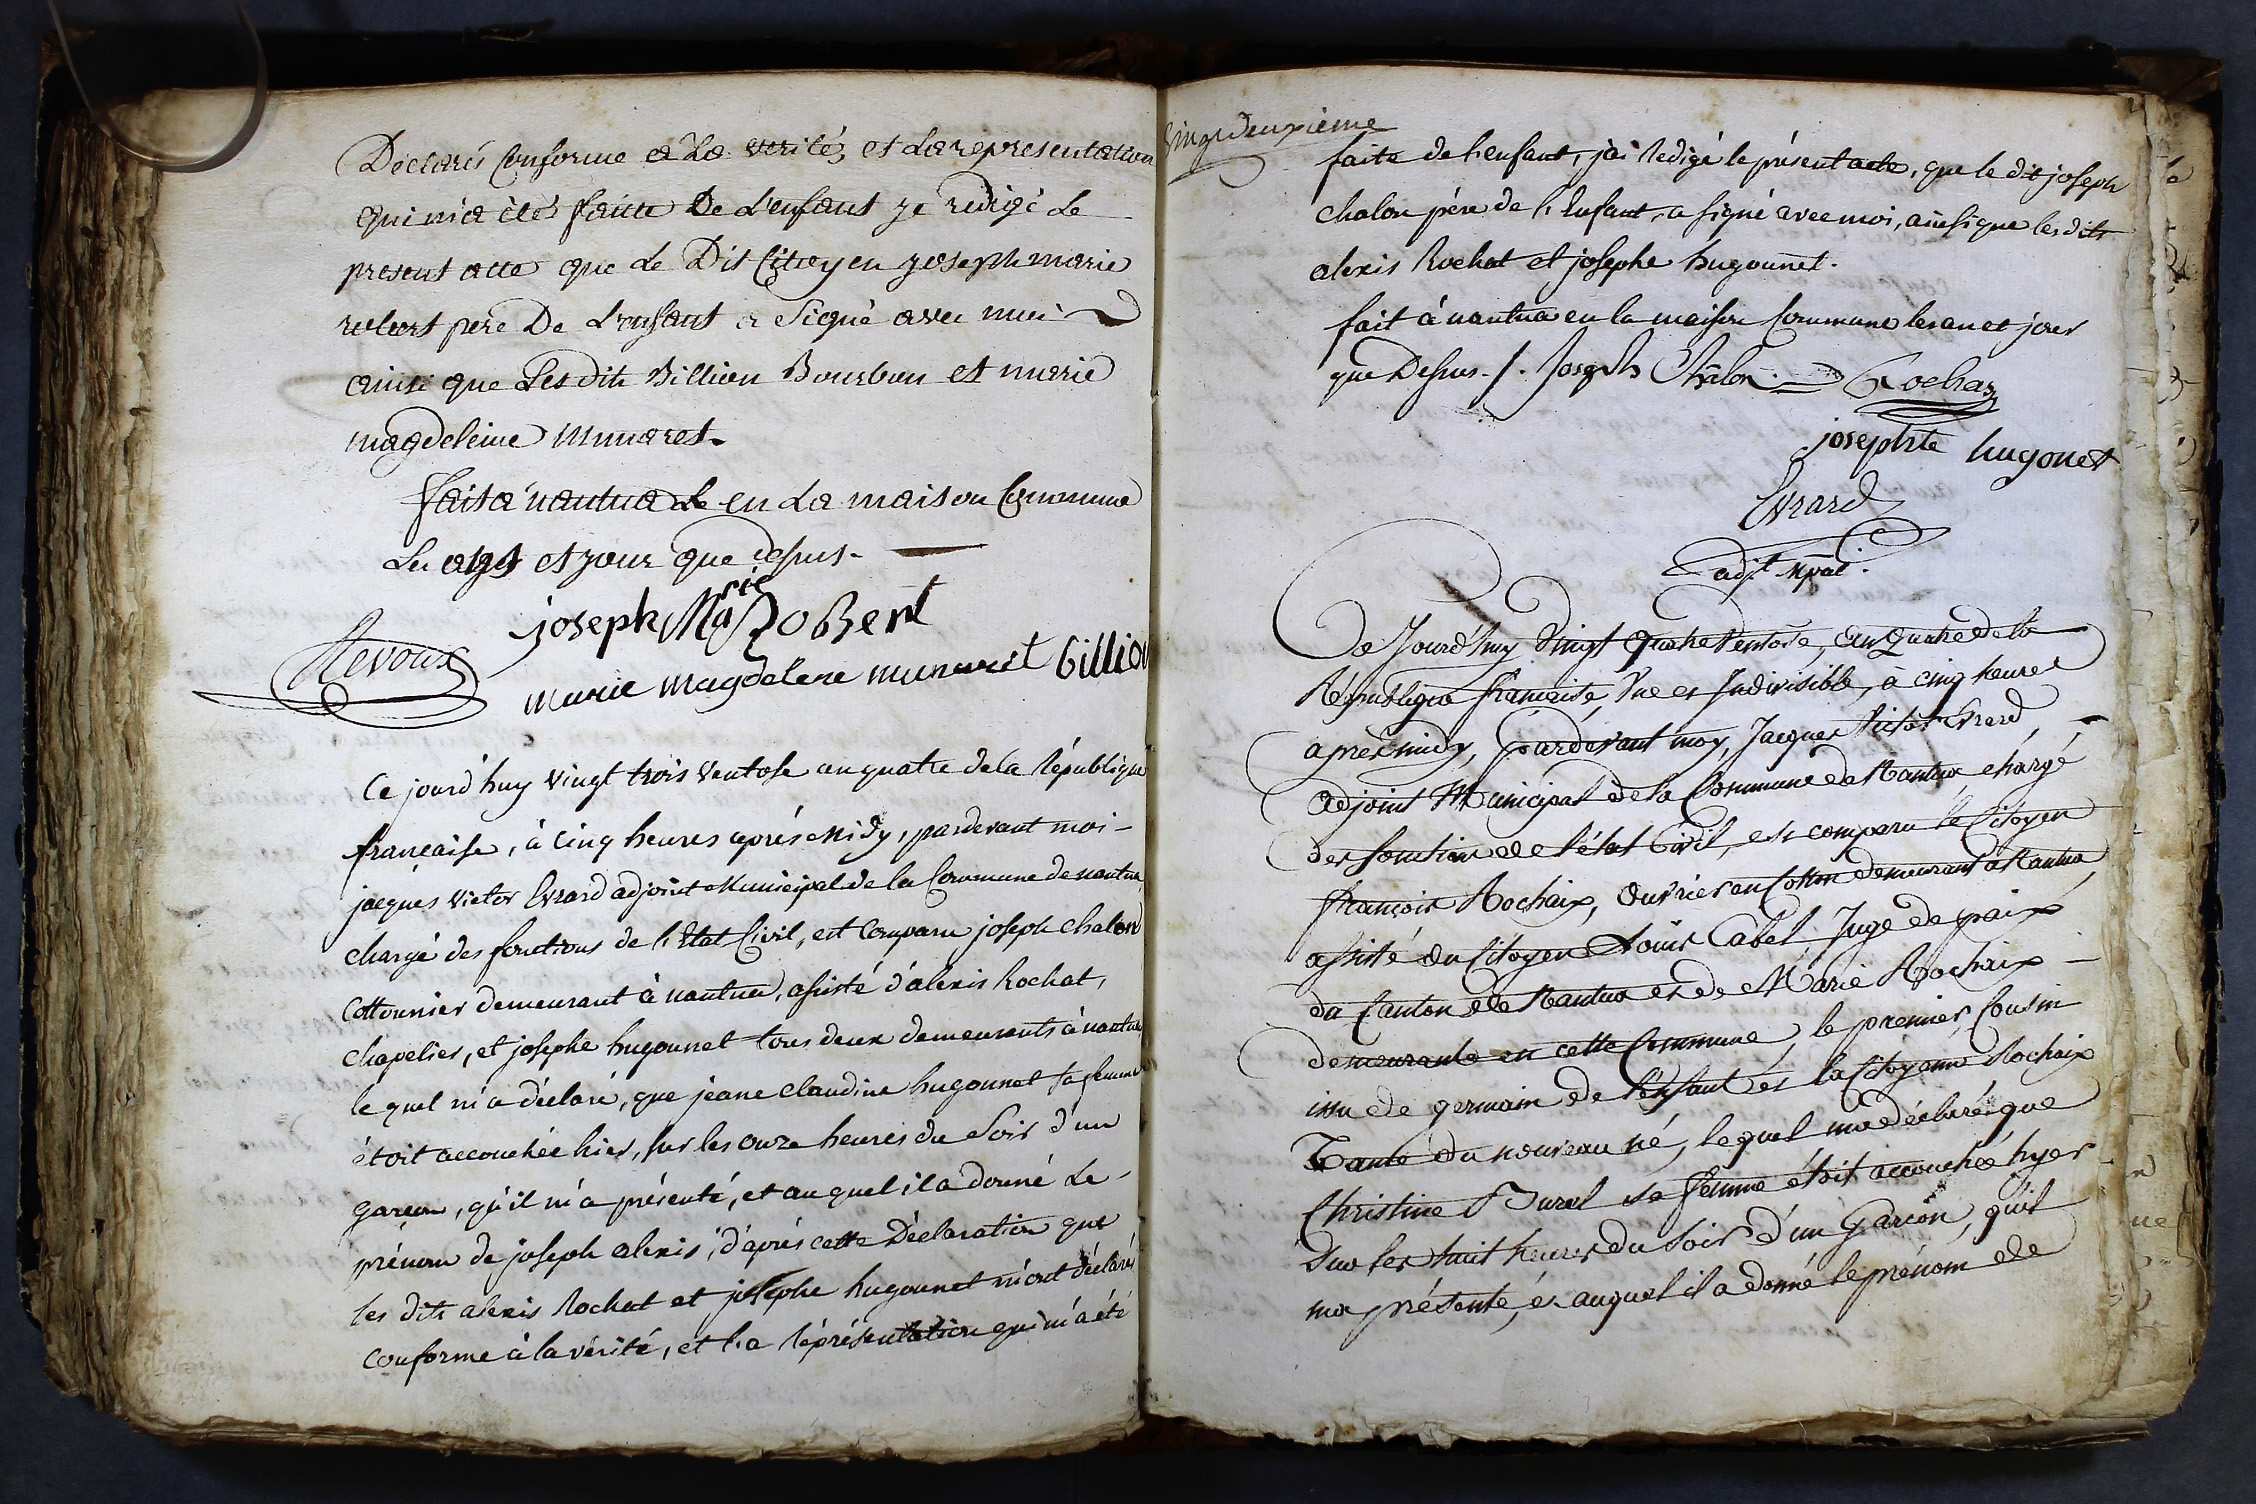 Déclarés Conforme a La verité, et La representation
qui m'a été faitte De L'enfant je redigé Le
present acte que Le Dit Citoyen joseph marie
robert pere De L'enfant a Signé avec moi
ainsi que Les dits Billion Bourbon et marie
magdeleine munaret.
fait a nantua Le en La maison Commune
Les ans et jour que desus.
joseph Marie Robert
Revoux
marie magdelene munaret billion
Ce jourd'huy vingt trois Ventose an quatre de la République
française, à Cinq heures après midy, pardevant moi
jacques victor Evrard adjoint Municipal de la Commune de nantua
chargé des fonctions de l'Etat Civil, est Comparu joseph chalon
Cottonnier demeurant à nantua, assisté d'alexis Rochat,
chapelier, et josephe hugonnet tous deux demeurants à nantua
le quel m'a déclaré, que jeane claudine hugonnet sa femme
étoit accouchée hier, sur les onze heures du Soir d'un
garçon, qu'il m'a présenté, et au quel il a donné Le
prénom de joseph alexis, d'après cette Déclaration que
les dits alexis Rochat et josephe hugonnet m'ont déclaré
conforme à la vérité, et la réprésentation qui m'a été
deuxième
faite de l'enfant, j'ai Redigé le présent acte, que le dit joseph
chalon père de l'Enfant, a signé avec moi, ainsi que les dits
alexis Rochat et josephe hugonnet.
fait à nantua en la maison Commune les an et jour
que Dessus. /. Joseph Chalon. Rochat
josephte hugonet
Evrard
adjt. Mpal.
Ce Jourd'huy Vingt quatre Ventose, an quatre de la
République française, Une et Indivisible, à cinq heures
après midy, pardevant moy, Jacques Victor Evrard,
adjoint Municipal de la Commune de Nantua chargé
des fonctions de l'état Civil, est comparu le Citoyen
françois Rochaix, Ouvrier en Cotton demeurant à Nantua,
assisté du Citoyen Louis Cabet Juge de paix
du Canton de Nantua et de Marie Rochaix
demeurante en cette Commune, le premier, Cousin
issu de germain de l'enfant et la Citoyenne Rochaix
Tante du nouveau né, lequel m'a déclaré que
Christine Burel sa femme étoit accouchée hyer
Sur les huit heures du Soir d'un Garçon, qu'il
m'a présenté, et auquel il a donné le prénom de